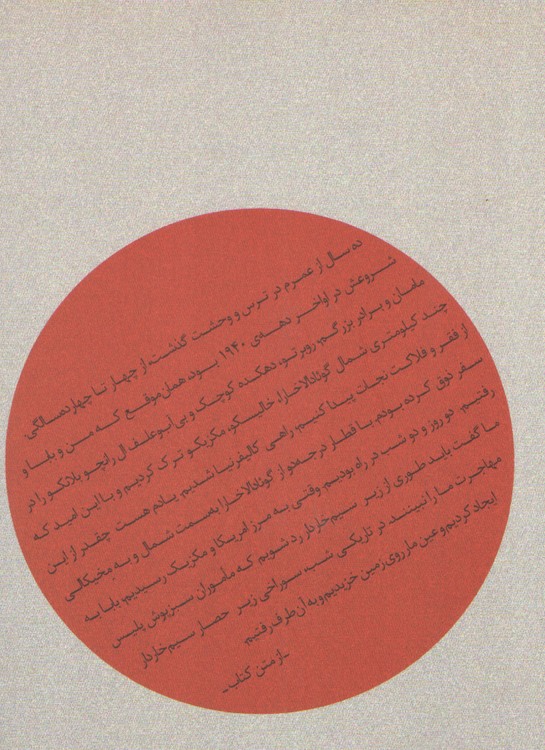 ده سال از عمرم در ترس و وحشت گذشت، از چهار تا چهارده‌سالگی.
شروعش در اواخر دهه‌ی ۱۹۴۰ بود، همان موقع که من و بابا و
مامان و برادر بزرگم، روبرتو، دهکده کوچک و بی‌آب‌وعلف ال رانچو بلانکو را در
چند کیلومتری شمال گوئادالاخارا، خالیسکو، مکزیکو ترک کردیم و با این امید که
از فقر و فلاکت نجات پیدا کنیم، راهی کالیفرنیا شدیم. یادم هست چقدر از این
سفر ذوق کرده بودم. با قطار درجه‌دو از گوئادالاخارا به‌سمت شمال و به مخیکالی
رفتیم. دو روز و دو شب در راه بودیم. وقتی به مرز امریکا و مکزیک رسیدیم، بابا به
ما گفت باید طوری از زیر سیم‌خاردار رد شویم که مأموران سبزپوش پلیس
مهاجرت ما را نبینند. در تاریکی شب، سوراخی زیر حصار سیم‌خاردار
ایجاد کردیم و عین مار روی زمین خزیدیم و به آن طرف رفتیم.
ـ از متن کتاب ـ